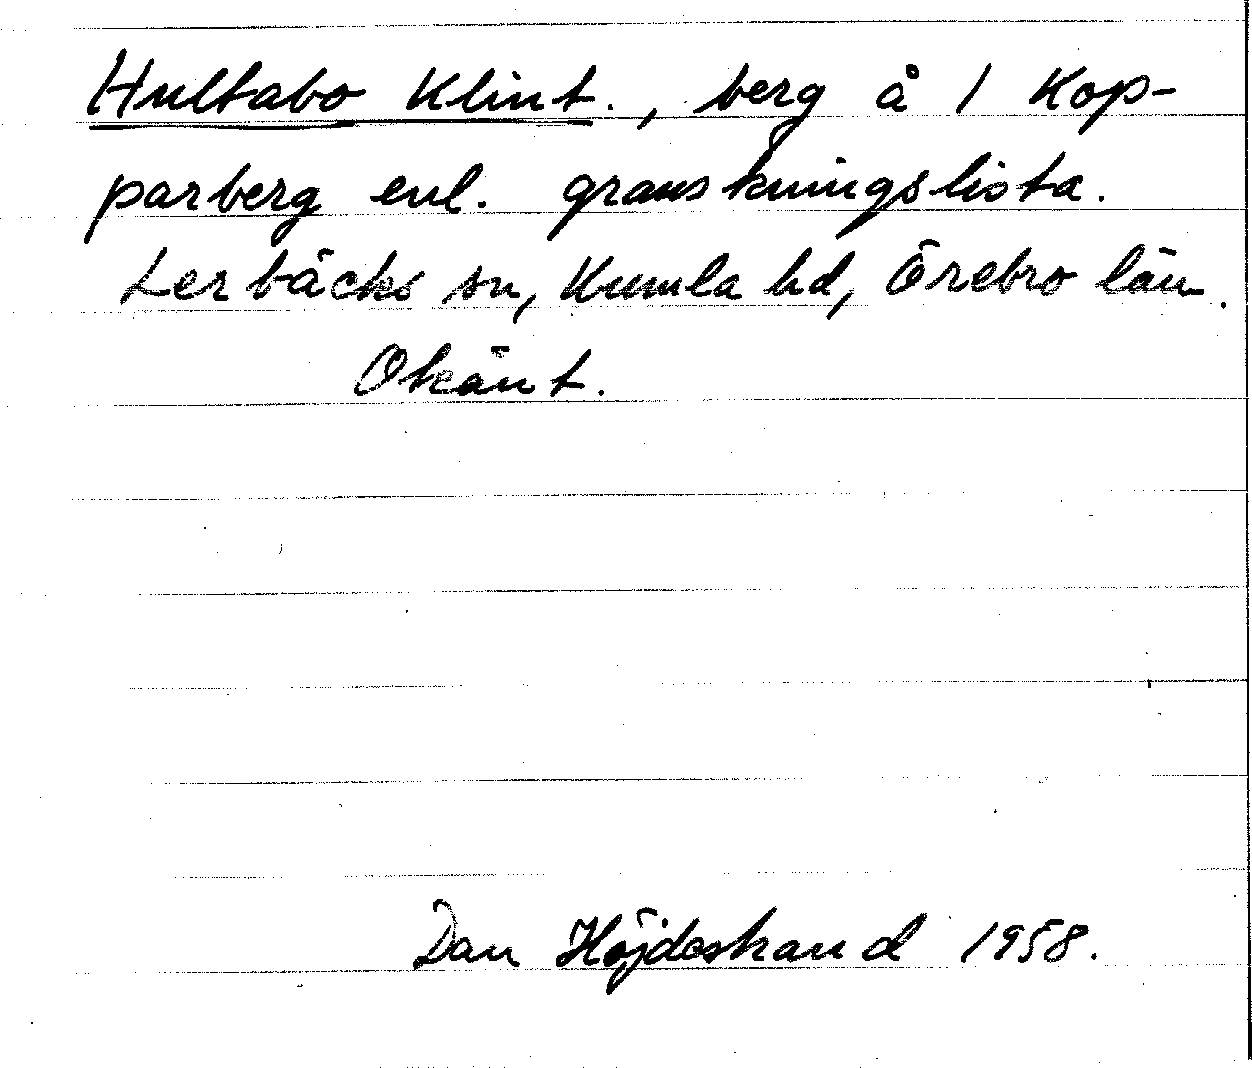 Hultabo Klint., berg å 1 Kop-
parberg enl. granskningslista.
Lerbäcks sn, Kumla hd, Örebro län.
Okänt.
Dan Höjdestrand 1958.